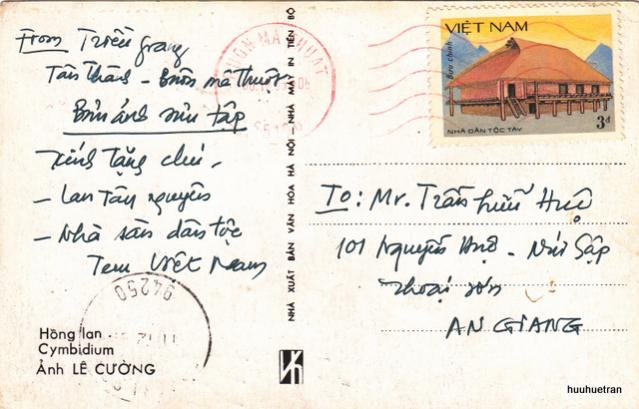 From Triều Giang
Tân Thành - Buôn mã thuột
Bưu ảnh sưu tập
Kính tặng chú,
- Lan Tây nguyên
- Nhà sàn dân tộc
Tem Việt Nam
94250
Hồng lan
Cymbidium
Ảnh LÊ CƯỜNG
NHÀ XUẤT BẢN VĂN HÓA HÀ NỘI - NHÀ MÁY IN TIẾN BỘ
BUÔN MÃ THUỘT
VIỆT NAM
Bưu chính
NHÀ DÂN TỘC TÂY
3đ
To: Mr. Trần Hữu Huệ
101 Nguyễn Huệ - Núi Sập
Thoại Sơn
AN GIANG
huuhuetran